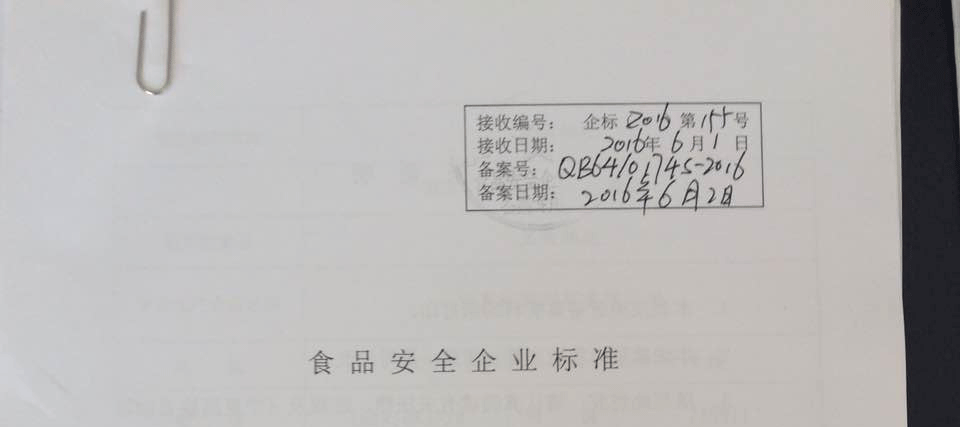 接收编号： 企标 2016 第 155 号
接收日期： 2016年 6 月 1 日
备案号： QB6410 1745-2016
备案日期： 2016年6月2日
食品安全企业标准